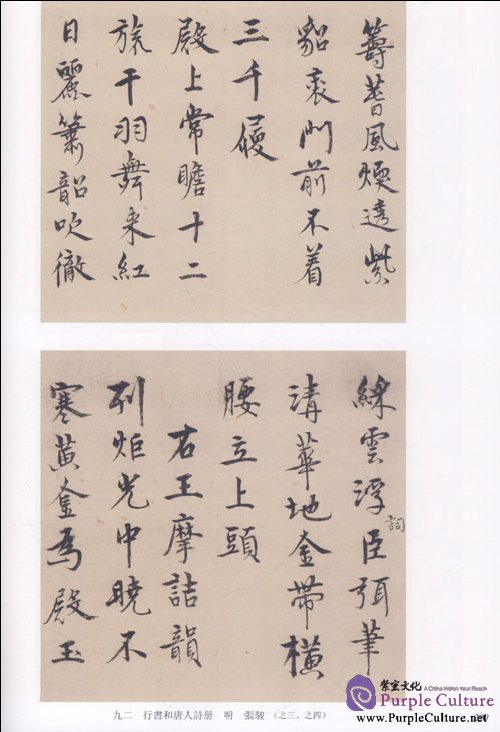 籌風煖透紫
貂裘門前不着
三千履
殿上常瞻十二
旒干羽舞來紅
日麗簫韶吹徹
綵雲浮詞臣弭筆
清華地金帶橫
腰立上頭
右王摩詰韻
列炬光中曉不
寒黄金為殿玉
九二 行書和唐人詩册 明 張駿 （之三、之四）
紫宣文化 A China Within Your Reach
Purple Culture
www.PurpleCulture.net